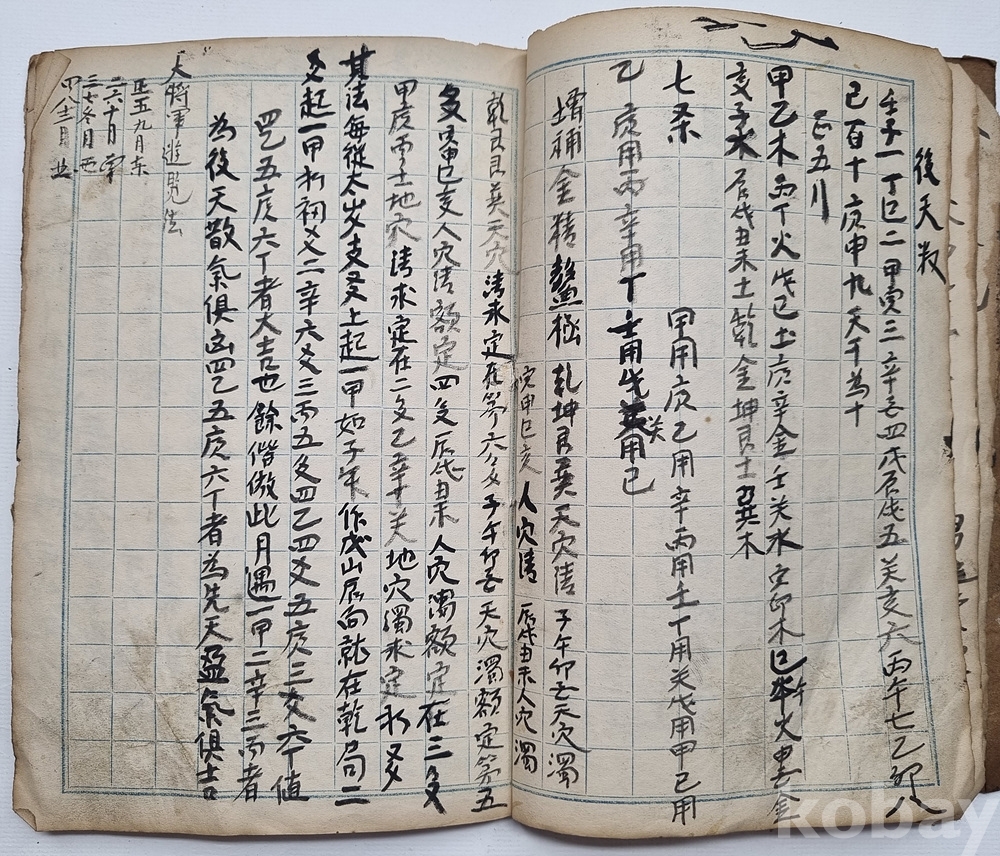 後天殺
壬子一 丁巳二 甲寅三 辛 四 戊辰戌五 癸亥六 丙午七 乙卯八
己百十 庚申九 天干為十
正五
甲乙木 丙丁火 戊己土 庚辛金 壬癸水 寅卯木 巳午火 申酉金
亥子水 辰戌丑未土 乾金 坤艮土 巽木
七杀 甲用庚 乙用辛 丙用壬 丁用癸 戊用甲 己用
乙 庚用丙 辛用丁 壬用戊 癸用己
增補金精鰲極 乾坤艮巽天穴清 子午卯酉天穴濁
寅申巳亥人穴清 辰戌丑未人穴濁
乾坤艮巽天穴清求定在第六爻 子午卯酉天穴濁額定第五
爻 寅申巳亥人穴清額定四爻 辰戌丑未人穴濁額定在三爻
甲庚丙壬地穴清求定在二爻 乙辛丁癸地穴濁求定初爻
其法每從太歲支爻上起一甲如子年作戌山辰向就在乾局二
爻起一甲於初爻二辛六爻三丙五爻四乙四爻五庚三爻六丁值
四乙五庚六丁者大吉也餘偕倣此月遇一甲二辛三丙者
為後天散氣俱凶四乙五庚六丁者為先天盈氣俱吉
大將軍遊 法
正五九月东
二六十月南
三七 月西
四八 月北
kobay